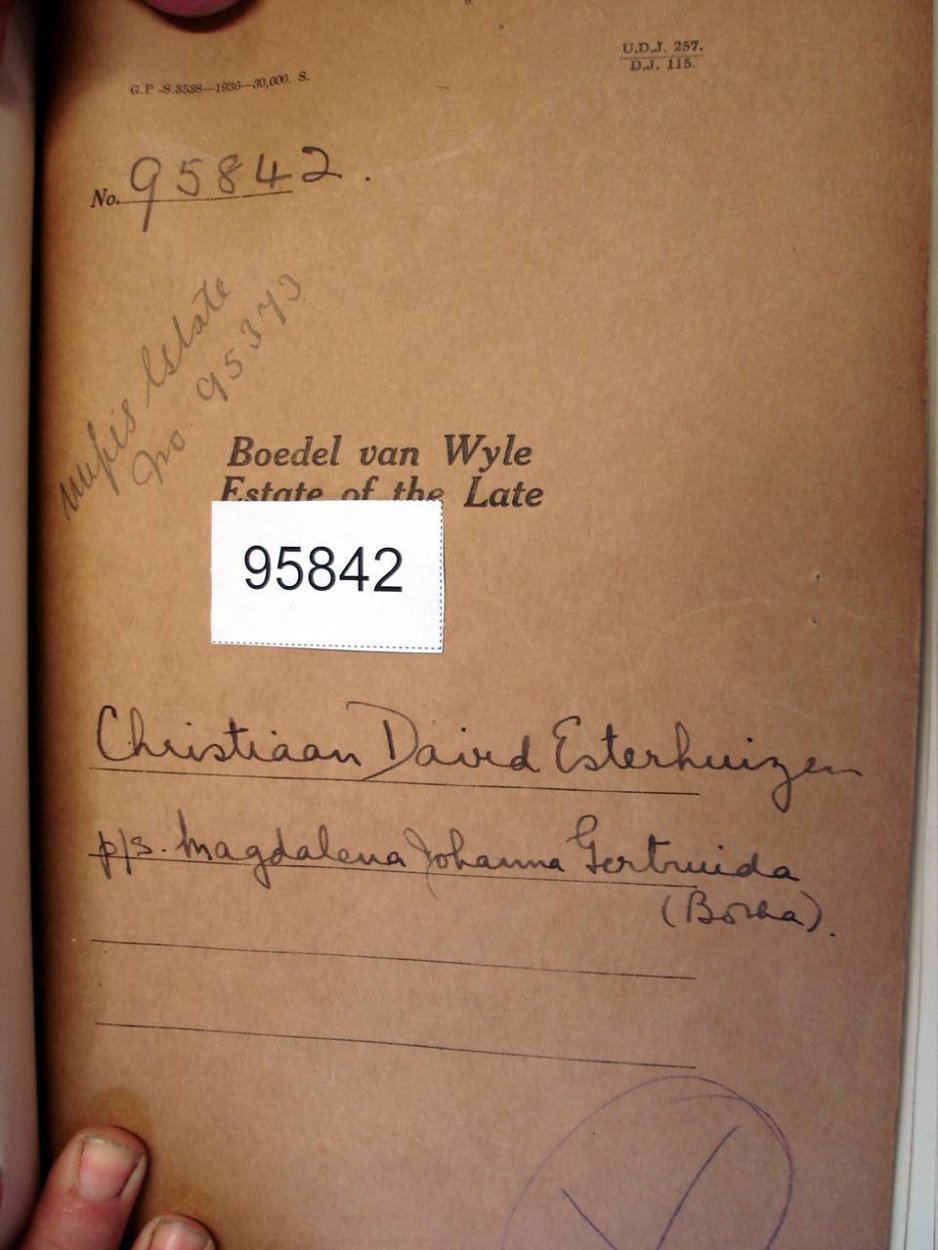 U.D.J. 257.
D.J. 115.
G.P.-S.3538—1936—30,000. S.
No. 95842.
wife's Estate
No. 95373
Boedel van Wyle
Estate of the Late
95842
Christiaan David Esterhuizen
p/s. Magdalena Johanna Gertruida
(Botha).